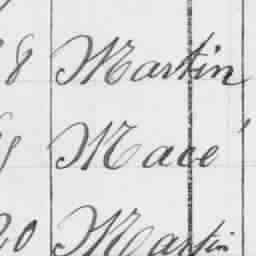 8 Martin
9 Macé
20 Martin